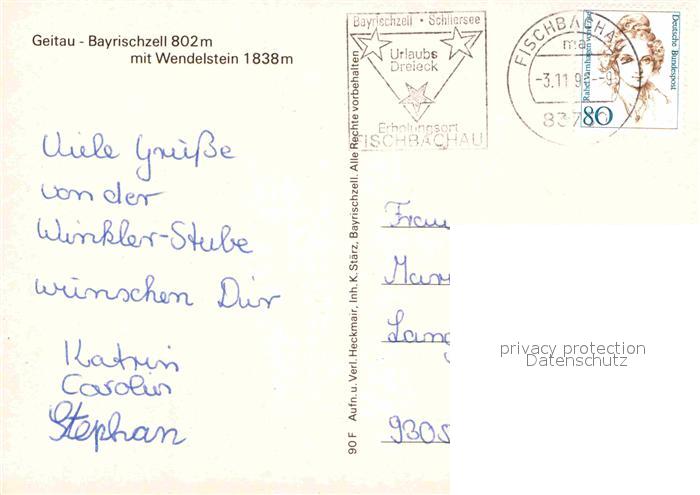 Geitau - Bayrischzell 802m
mit Wendelstein 1838m
Viele Grüße
von der
Winkler-Stube
wünschen Dir
Katrin
Carolin
Stephan
90 F Aufn. u. Verl. Heckmair, Inh. K. Stärz, Bayrischzell. Alle Rechte vorbehalten
Bayrischzell · Schliersee
Urlaubs
Dreieck
Erholungsort
FISCHBACHAU
FISCHBACHAU 1
ma
-3.11.9
837
Rahel Varnhagen von Ense
Deutsche Bundespost
80
Frau
Mar
Lang
9305
privacy protection
Datenschutz